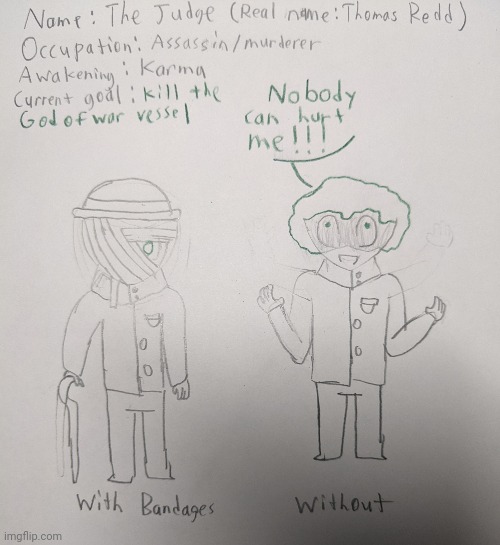 Name: The Judge (Real name: Thomas Redd)
Occupation: Assassin/murderer
Awakening: Karma
Current goal: kill the
God of war vessel
Nobody
can hurt
me!!!
With Bandages
Without
imgflip.com